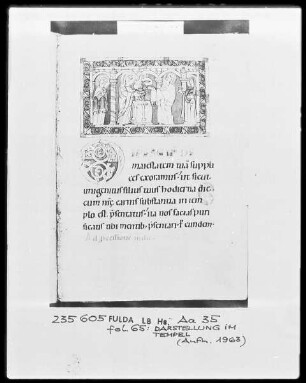 maiestatem tuã suppli
ces exoramus. ut sicut
unigenitus filius tuus hodierna die
cum nrę̃ carnis substantia in tem
plo est p̃sentatus. ita nos facias puri
ficatis tibi mentib; p̃sentari. P̃ eundem.
235 605 FULDA LB Hs: Aa 35
fol. 65: DARSTELLUNG IM
TEMPEL
(Aufn. 1963)